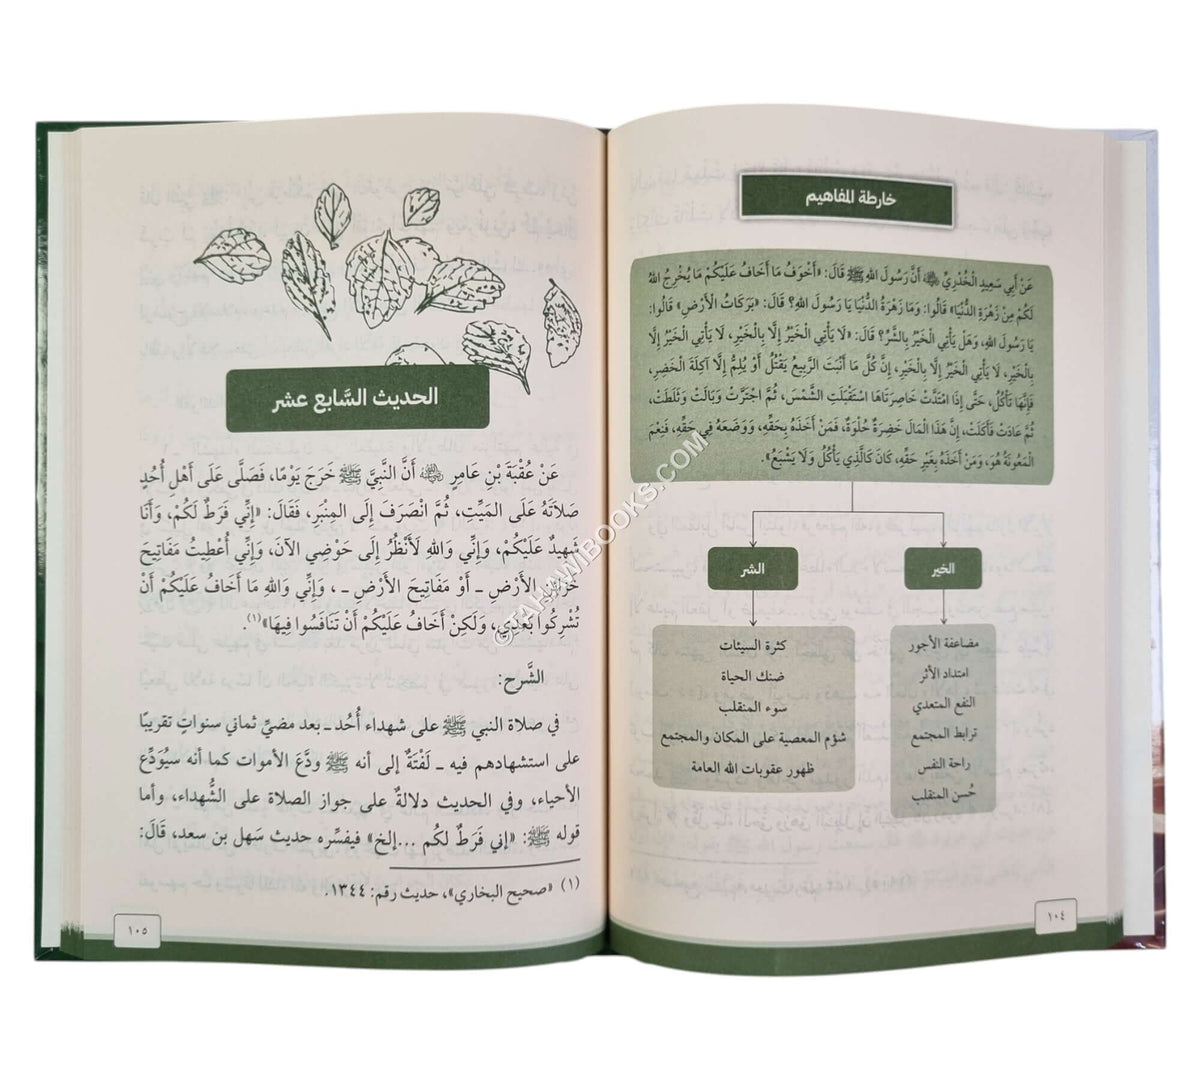 خارطة المفاهيم
عَنْ أَبِي سَعِيدٍ الْخُدْرِيِّ ﷺ أَنَّ رَسُولَ اللهِ ﷺ قَالَ: «أَخْوَفُ مَا أَخَافُ عَلَيْكُمْ مَا يُخْرِجُ اللهُ
لَكُمْ مِنْ زَهْرَةِ الدُّنْيَا» قَالُوا: وَمَا زَهْرَةُ الدُّنْيَا يَا رَسُولَ اللهِ؟ قَالَ: «بَرَكَاتُ الْأَرْضِ» قَالُوا:
يَا رَسُولَ اللهِ، وَهَلْ يَأْتِي الْخَيْرُ بِالشَّرِّ؟ قَالَ: «لَا يَأْتِي الْخَيْرُ إِلَّا بِالْخَيْرِ، لَا يَأْتِي الْخَيْرُ إِلَّا
بِالْخَيْرِ، لَا يَأْتِي الْخَيْرُ إِلَّا بِالْخَيْرِ، إِنَّ كُلَّ مَا أَنْبَتَ الرَّبِيعُ يَقْتُلُ أَوْ يُلِمُّ إِلَّا آكِلَةَ الْخَضِرِ،
فَإِنَّهَا تَأْكُلُ، حَتَّى إِذَا امْتَدَّتْ خَاصِرَتَاهَا اسْتَقْبَلَتِ الشَّمْسَ، ثُمَّ اجْتَرَّتْ وَبَالَتْ وَثَلَطَتْ،
ثُمَّ عَادَتْ فَأَكَلَتْ، إِنَّ هَذَا الْمَالَ خَضِرَةٌ حُلْوَةٌ، فَمَنْ أَخَذَهُ بِحَقِّهِ، وَوَضَعَهُ فِي حَقِّهِ، فَنِعْمَ
الْمَعُونَةُ هُوَ، وَمَنْ أَخَذَهُ بِغَيْرِ حَقِّهِ، كَانَ كَالَّذِي يَأْكُلُ وَلَا يَشْبَعُ».
الخير
مضاعفة الأجور
امتداد الأثر
النفع المتعدي
ترابط المجتمع
راحة النفس
حُسن المنقلب
الشر
كثرة السيئات
ضنك الحياة
سوء المنقلب
شؤم المعصية على المكان والمجتمع
ظهور عقوبات الله العامة
١٠٤
الحديث السَّابع عشر
عَنْ عُقْبَةَ بْنِ عَامِرٍ أَنَّ النَّبِيَّ ﷺ خَرَجَ يَوْمًا، فَصَلَّى عَلَى أَهْلِ أُحُدٍ
صَلَاتَهُ عَلَى المَيِّتِ، ثُمَّ انْصَرَفَ إِلَى المِنْبَرِ، فَقَالَ: «إِنِّي فَرَطٌ لَكُمْ، وَأَنَا
شَهِيدٌ عَلَيْكُمْ، وَإِنِّي وَاللهِ لَأَنْظُرُ إِلَى حَوْضِي الآنَ، وَإِنِّي أُعْطِيتُ مَفَاتِيحَ
خَزَائِنِ الأَرْضِ ـ أَوْ مَفَاتِيحَ الأَرْضِ ـ ، وَإِنِّي وَاللهِ مَا أَخَافُ عَلَيْكُمْ أَنْ
تُشْرِكُوا بَعْدِي، وَلَكِنْ أَخَافُ عَلَيْكُمْ أَنْ تَنَافَسُوا فِيهَا»(١)
الشَّرح:
في صلاة النبي ﷺ على شهداء أُحُد ـ بعد مضيِّ ثماني سنواتٍ تقريبًا
على استشهادهم فيه ـ لَفْتَةٌ إلى أنه ﷺ ودَّعَ الأموات كما أنه سيُوَدِّع
الأحياء، وفي الحديث دلالةٌ على جواز الصلاة على الشُّهداء، وأما
قوله ﷺ: «إني فَرَطٌ لكُم ...إلخ» فيفسِّره حديث سَهل بن سعد، قَالَ:
(١) «صحيح البخاري»، حديث رقم: ١٣٤٤.
١٠٥